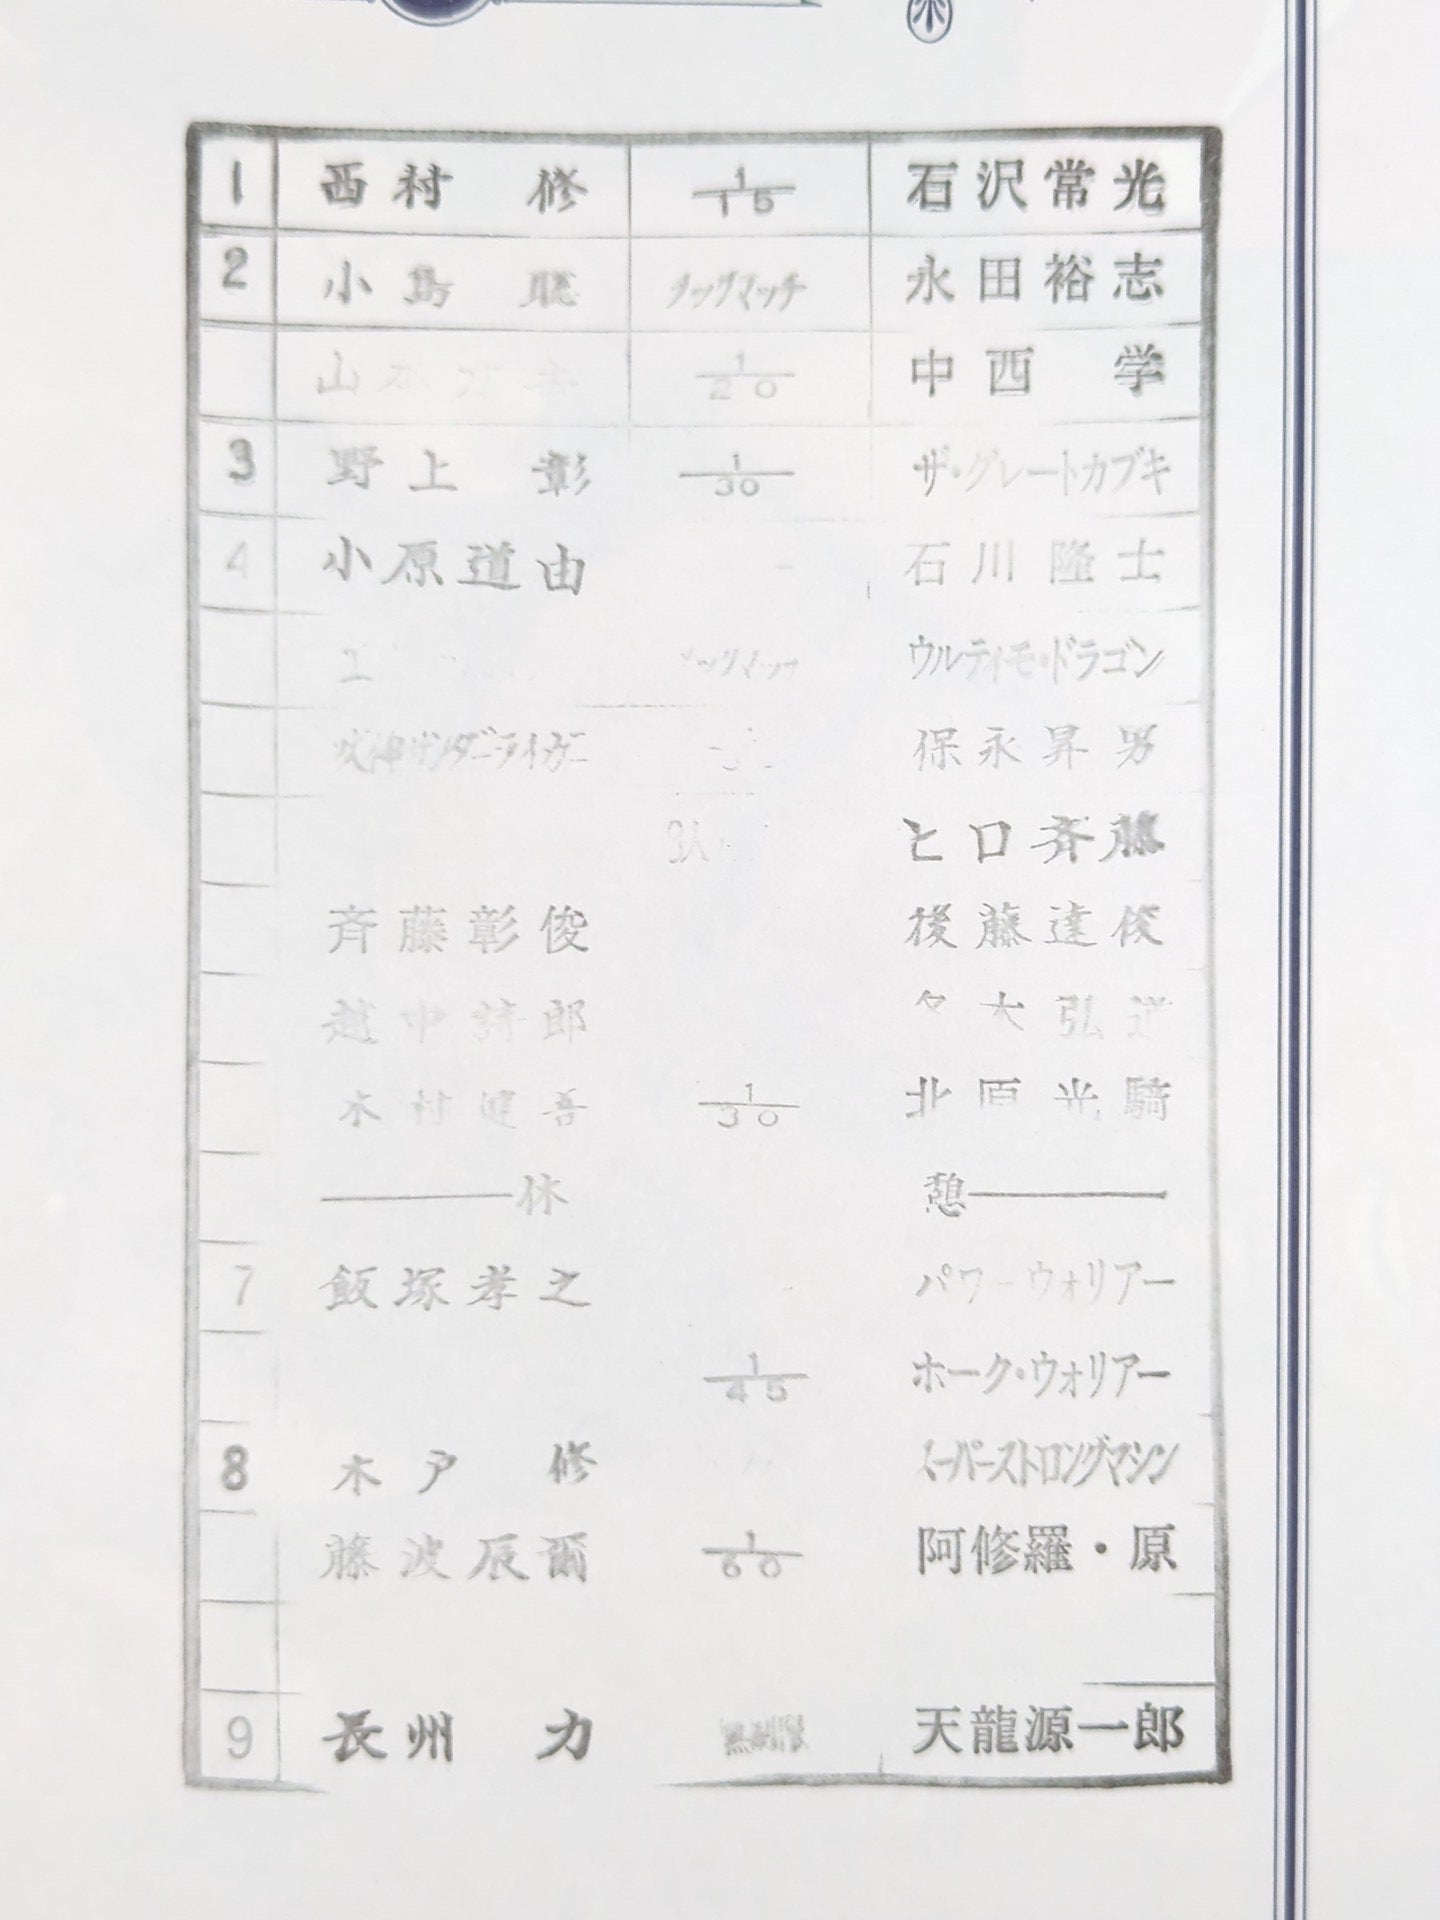 1 西村 修 1/15 石沢常光
2 小島 聡 タッグマッチ 永田裕志
山本 1/20 中西 学
3 野上 彰 1/30 ザ・グレートカブキ
4 小原道由 石川隆士
タッグマッチ ウルティモ・ドラゴン
獣神サンダーライガー 保永昇男
ヒロ斉藤
斉藤彰俊 後藤達俊
越中詩郎 大弘
木村健吾 1/30 北原光騎
――休 憩――
7 飯塚孝之 パワーウォリアー
1/45 ホーク・ウォリアー
8 木戸 修 スーパーストロングマシン
藤波辰爾 1/60 阿修羅・原
9 長州 力 無制限 天龍源一郎